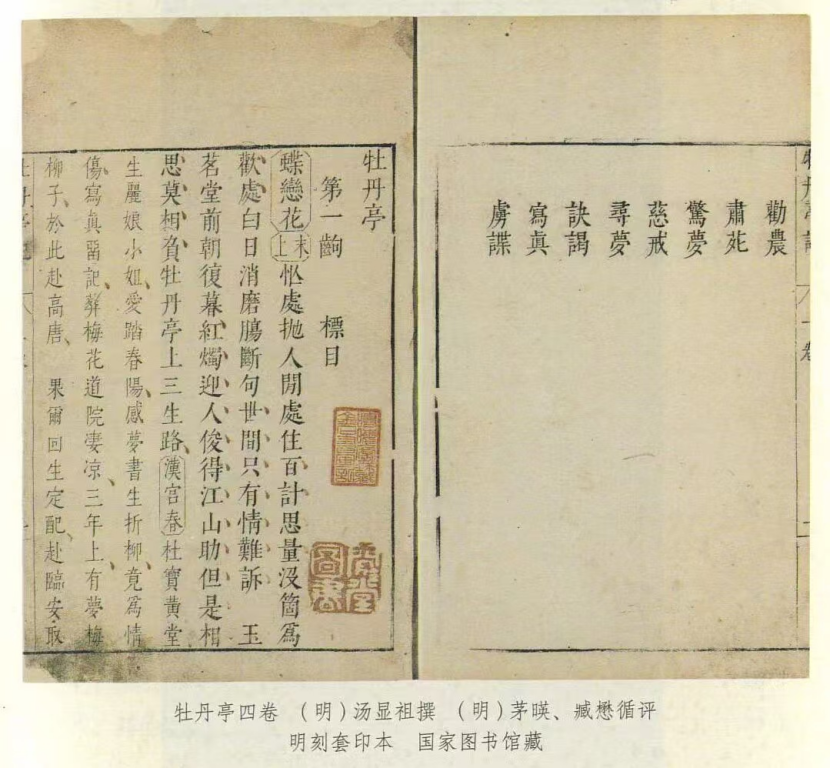 勸農
肅苑
驚夢
慈戒
尋夢
訣謁
寫眞
虜諜
牡丹亭
第一齣 標目
蝶戀花 末上 忙處拋人閒處住百計思量沒箇爲
歡處白日消磨膓斷句世間只有情難訴 玉
茗堂前朝復暮紅燭迎人俊得江山助但是相
思莫相負牡丹亭上三生路 漢宮春 杜寶黃堂
生麗娘小姐、愛踏春陽、感夢書生折柳、竟爲情
傷、寫眞畱記、葬梅花道院凄凉、三年上、有夢梅
柳子、於此赴高唐、 果爾回生定配、赴臨安取
牡丹亭四卷 （明）汤显祖撰 （明）茅暎、臧懋循评
明刻套印本 国家图书馆藏